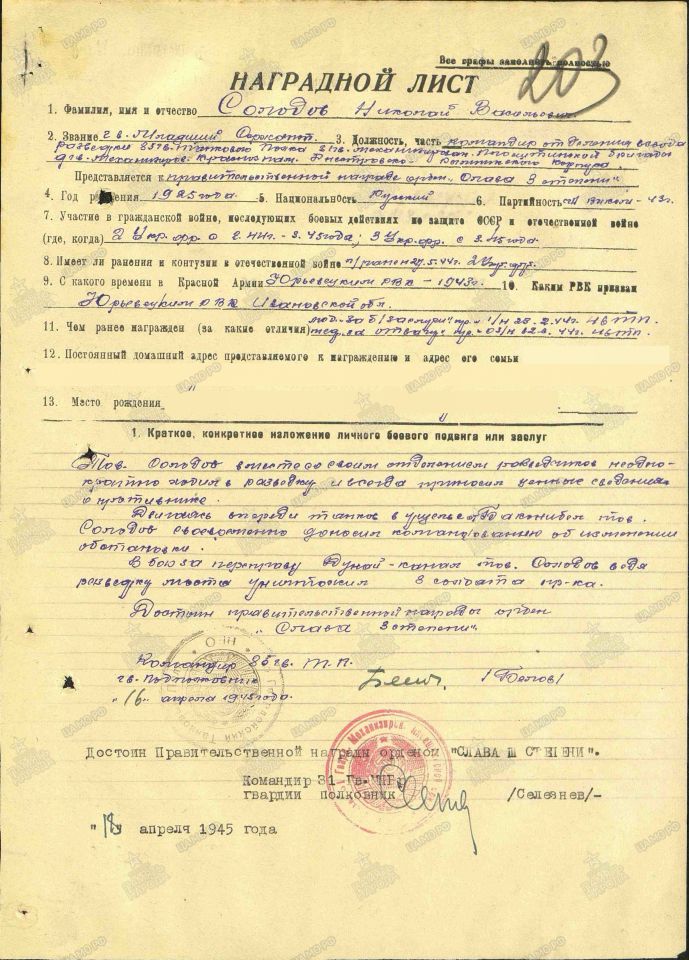 Все графы заполнять полностью
203
НАГРАДНОЙ ЛИСТ
1. Фамилия, имя и отчество Солодов Николай Васильевич
2. Звание гв. Младший Сержант 3. Должность, часть командир отделения взвода
разведки 85 гв. танкового Полка 31 гв. механизирован. бригады
Корпуса
Представляется к правительственной награде орден „Слава 3 степени"
4. Год рождения 1925 года 5. Национальность Русский 6. Партийность ВЛКСМ - 43г.
7. Участие в гражданской войне, последующих боевых действиях по защите СССР и отечественной войне
(где, когда) 2 Укр. фр. с 2.44г - 3.45 года; 3 Укр. фр. с 3.45 года
8. Имеет ли ранения и контузии в отечественной войне 5.44г. 2 Укр. фр.
9. С какого времени в Красной Армии Юрьевецким РВК - 1943г. 10. Каким РВК призван
Юрьевецким РВК Ивановской обл.
11. Чем ранее награжден (за какие отличия) мед. за б/заслуги" пр-
мед. за отвагу" пр-
12. Постоянный домашний адрес представляемого к награждению и адрес его семьи
13. Место рождения
1. Краткое, конкретное изложение личного боевого подвига или заслуг
Тов. Солодов вместе со своим отделением разведчиков неодно-
кратно ходил в разведку и всегда приносил ценные сведения
о противнике.
Двигаясь впереди танков в ущелье тов.
Солодов своевременно доносил командованию об изменении
обстановки.
В бою за переправу Дунай-канал тов. Солодов ведя
разведку моста уничтожил 3 солдата пр-ка.
Достоин правительственной награды орден
„Слава 3 степени".
Командир 85 гв. Т.П.
гв. Подполковник /Белов/
„16" апреля 1945 года.
Достоин Правительственной награды орденом "СЛАВА III СТЕПЕНИ".
Командир 31 Гв.
гвардии полковник /Селезнев/-
"18" апреля 1945 года
ЦАМО.РФ